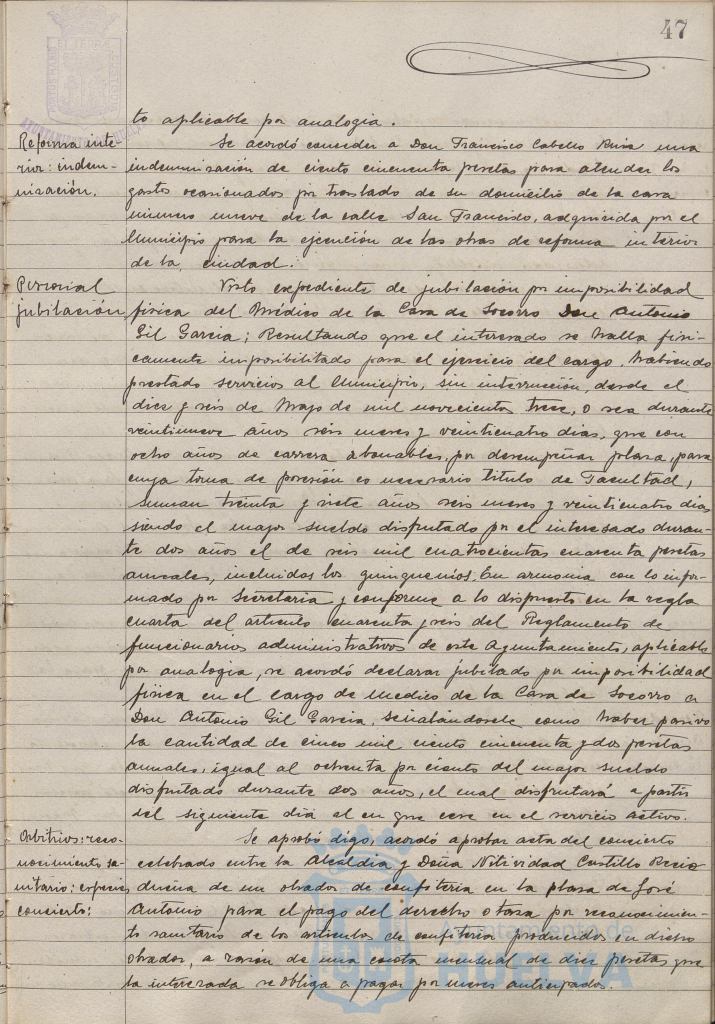 47
to aplicable por analogia.
Reforma inte-
rior: indem-
nización.
Se acordó conceder a Don Francisco Cabello Ruiz una
indemnisación de ciento cincuenta pesetas para atender los
gastos ocasionados por traslado de su domicilio de la casa
número nueve de la calle San Francisco, adquirida por el
Municipio para la ejecución de las obras de reforma interior
de la ciudad.
Personal
jubilación
Visto expediente de jubilación por imposibilidad
fisica del Médico de la Casa de Socorro Don Antonio
Gil Garcia; Resultando que el interesado se halla fisi-
camente imposibilitado para el ejercicio del cargo, habiendo
prestado servicios al Municipio, sin interrución, desde el
diez y seis de Mayo de mil novecientos trece, o sea durante
veintinueve años seis meses y veinticuatro dias, que con
ocho años de carrera abonables, por desempeñar plasa, para
cuya toma de posesión es necesario titulo de Facultad,
suman treinta y siete años seis meses y veinticuatro dias
siendo el mayor sueldo disfrutado por el interesado duran-
te dos años el de seis mil cuatrocientas cuarenta pesetas
anuales, incluidos los quinquenios. En armonia con lo infor-
mado por Secretaria y conforme a lo dispuesto en la regla
cuarta del articulo cuarenta y seis del Reglamento de
funcionarios administrativos de este Ayuntamiento, aplicable
por analogia, se acordó declarar jubilado por imposibilidad
fisica en el cargo de medico de la Casa de Socorro a
Don Antonio Gil Garcia, señalándosele como haber pasivo
la cantidad de cinco mil ciento cincuenta y dos pesetas
anuales, igual al ochenta por ciento del mayor sueldo
disfrutado durante dos años, el cual disfrutará a partir
del siguiente dia al en que cese en el servicio activo.
Arbitrios: reco-
nocimiento sa-
nitario: especies
concierto:
Se aprobó digo, acordó aprobar acta del concierto
celebrado entre la Alcaldia y Doña Natividad Castillo Recio
dueña de un obrador de confiteria en la plasa de José
Antonio para el pago del derecho o tasa por reconocimien-
to sanitario de los articulos de confiteria producidos en dicho
obrador, a rasón de una cuota mensual de diez pesetas que
la interesada se obliga a pagar por meses anticipados.
Ayuntamiento de
HUELVA